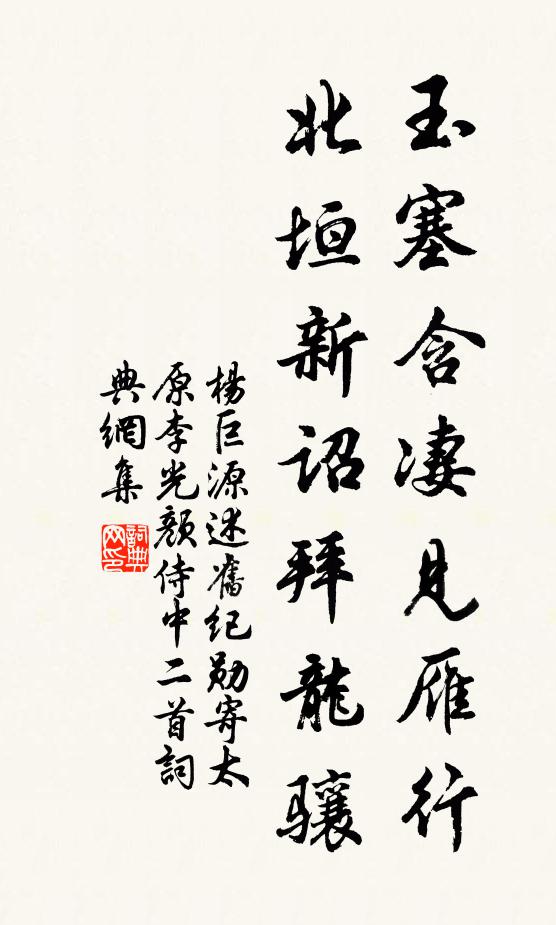 玉塞含凄見雁行
北垣新詔拜龍驤
楊巨源述舊紀勛寄太
原李光顏侍中二首詞
典網集
詞典
网印